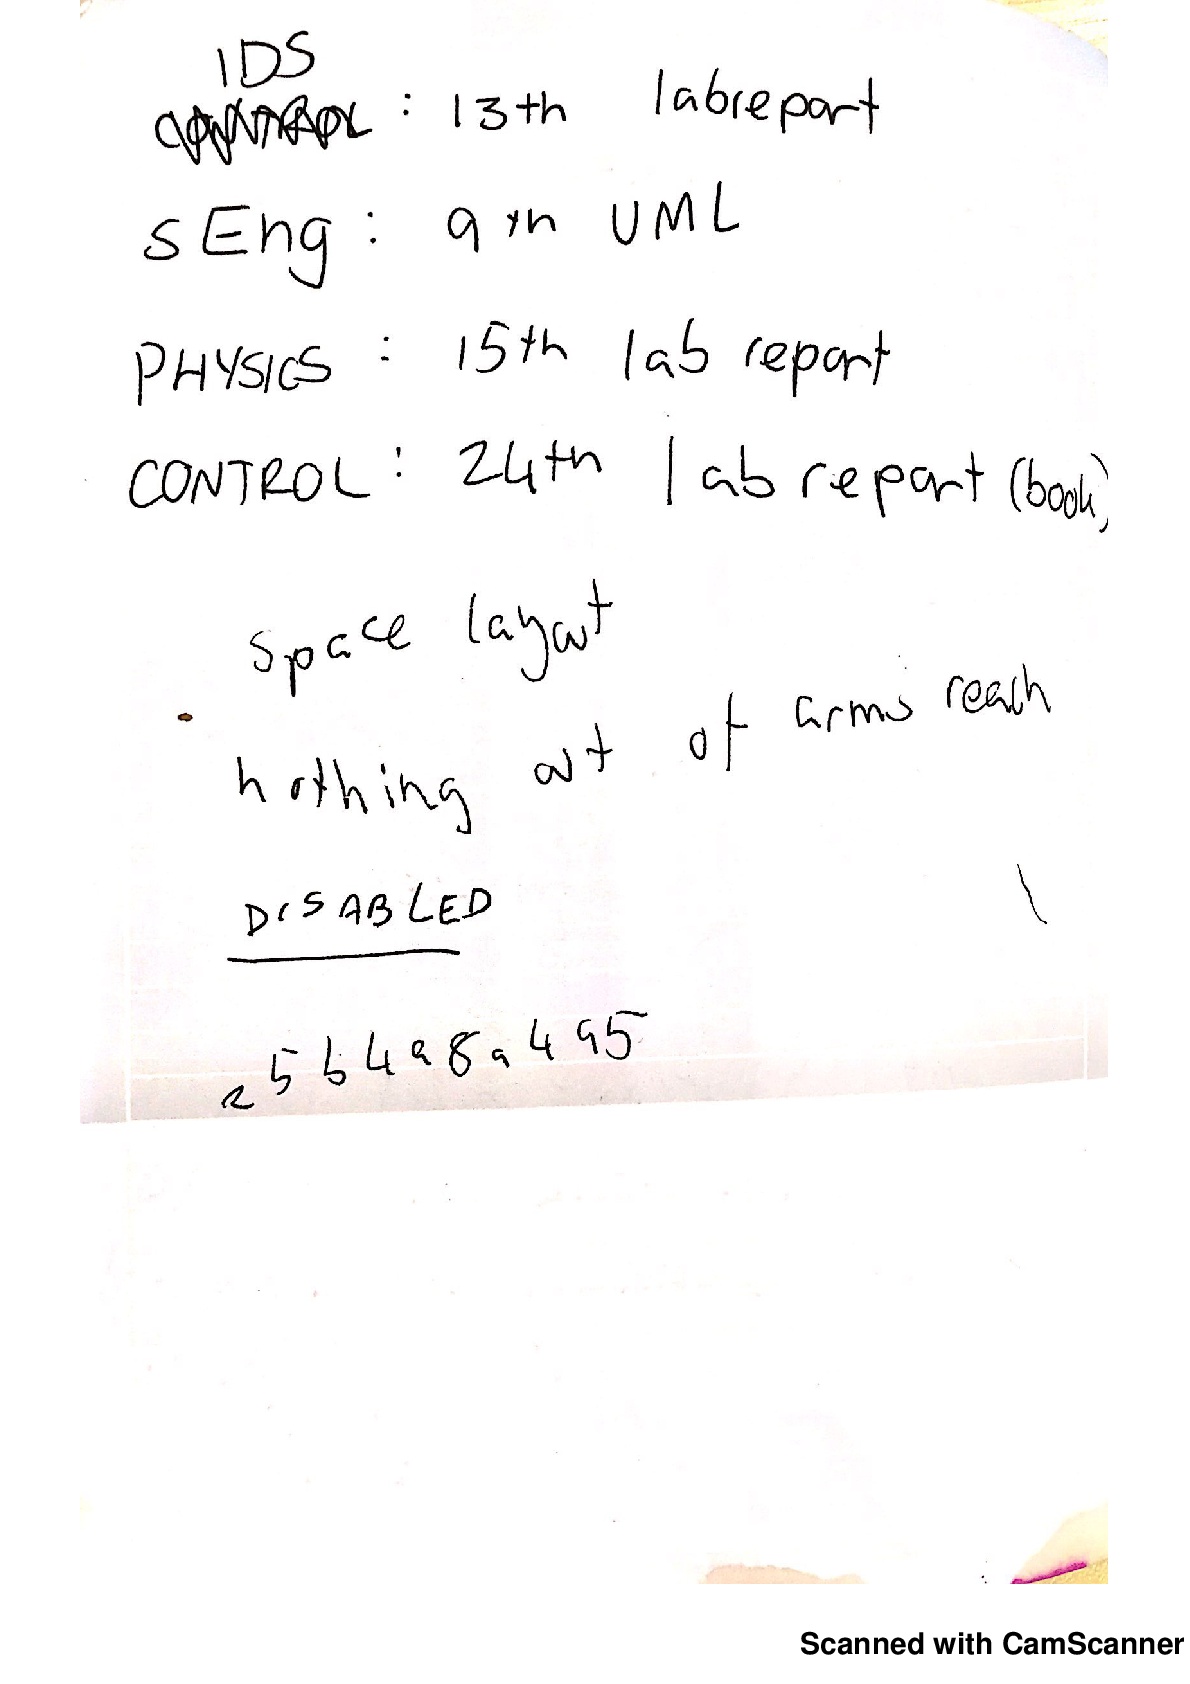 IDS
CONTROL : 13th labreport
SEng : 9th UML
PHYSICS : 15th lab report
CONTROL : 24th lab report (book)
space layout
nothing out of arms reach
DISABLED
Scanned with CamScanner